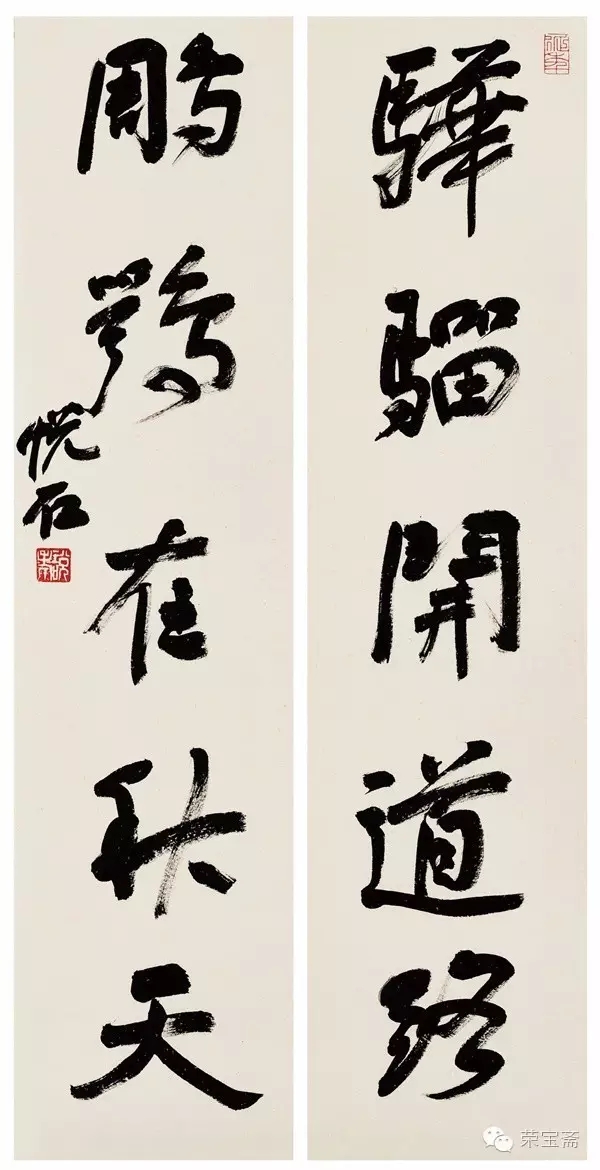 驊騮開道路
鵰鶚在秋天
悦石
荣宝斋